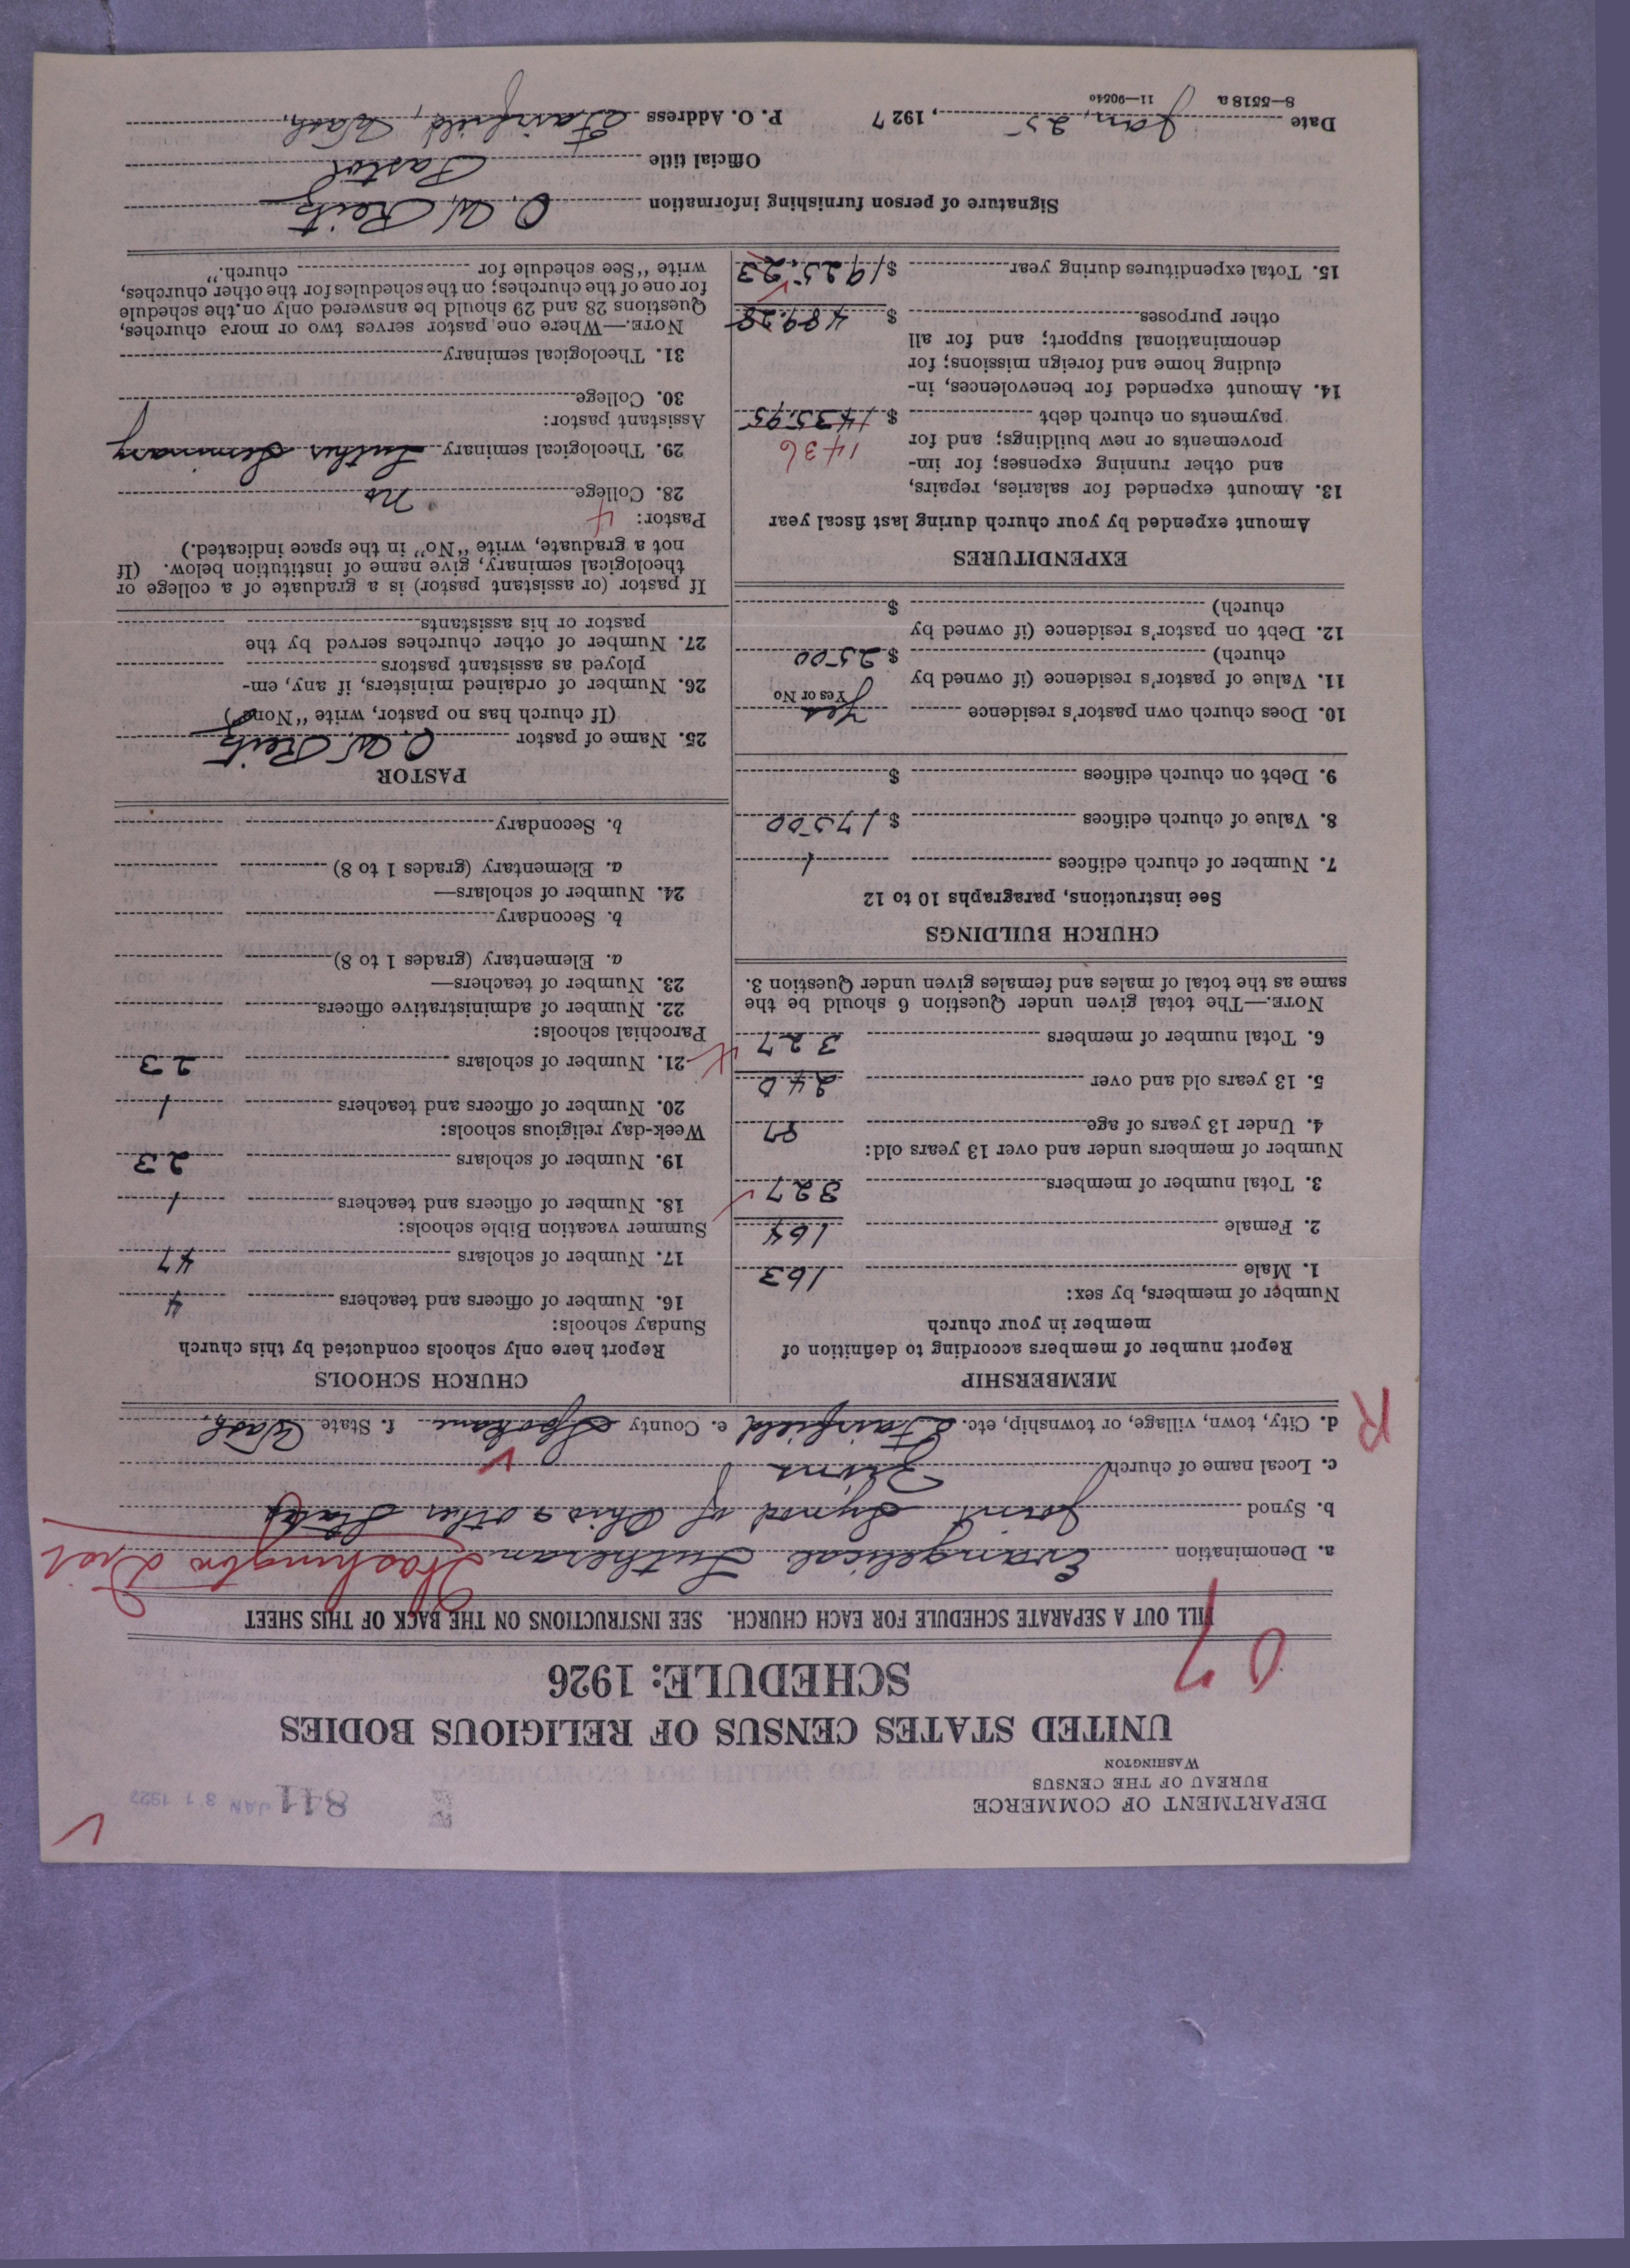 DEPARTMENT OF COMMERCE
BUREAU OF THE CENSUS
WASHINGTON
841 JAN 31 1927
UNITED STATES CENSUS OF RELIGIOUS BODIES
SCHEDULE: 1926
07
FILL OUT A SEPARATE SCHEDULE FOR EACH CHURCH. SEE INSTRUCTIONS ON THE BACK OF THIS SHEET
a. Denomination Evangelical Lutheran Washington Dist
b. Synod Joint Synod of Ohio & other States
c. Local name of church Zions
R
d. City, town, village, or township, etc. Fairfield e. County Spokane f. State Wash.
MEMBERSHIP
Report number of members according to definition of
member in your church
Number of members, by sex:
1. Male 163
2. Female 164
3. Total number of members 327
Number of members under and over 13 years old:
4. Under 13 years of age 87
5. 13 years old and over 240
6. Total number of members 327
NOTE.—The total given under Question 6 should be the
same as the total of males and females given under Question 3.
CHURCH BUILDINGS
See instructions, paragraphs 10 to 12
7. Number of church edifices 1
8. Value of church edifices $ 17500
9. Debt on church edifices $
10. Does church own pastor's residence Yes
Yes or No
11. Value of pastor's residence (if owned by
church) $ 2500
12. Debt on pastor's residence (if owned by
church) $
EXPENDITURES
Amount expended by your church during last fiscal year
13. Amount expended for salaries, repairs,
and other running expenses; for im-
provements or new buildings; and for 1436
payments on church debt $ 1435.95
14. Amount expended for benevolences, in-
cluding home and foreign missions; for
denominational support; and for all
other purposes $ 489.28
15. Total expenditures during year $ 1925.23
CHURCH SCHOOLS
Report here only schools conducted by this church
Sunday schools:
16. Number of officers and teachers 4
17. Number of scholars 47
Summer vacation Bible schools:
18. Number of officers and teachers 1
19. Number of scholars 23
Week-day religious schools:
20. Number of officers and teachers 1
21. Number of scholars 23
Parochial schools:
22. Number of administrative officers
23. Number of teachers—
a. Elementary (grades 1 to 8)
b. Secondary
24. Number of scholars—
a. Elementary (grades 1 to 8)
b. Secondary
PASTOR
25. Name of pastor O. W. Reitz
(If church has no pastor, write "None")
26. Number of ordained ministers, if any, em-
ployed as assistant pastors
27. Number of other churches served by the
pastor or his assistants
If pastor (or assistant pastor) is a graduate of a college or
theological seminary, give name of institution below. (If
not a graduate, write "No" in the space indicated.)
Pastor: 4
28. College no
29. Theological seminary Luther Seminary
Assistant pastor:
30. College
31. Theological seminary
NOTE.—Where one pastor serves two or more churches,
Questions 28 and 29 should be answered only on the schedule
for one of the churches; on the schedules for the other churches,
write "See schedule for church."
Signature of person furnishing information O. W. Reitz
Official title Pastor
Date Jan, 25, 1927 P. O. Address Fairfield, Wash,
8—5518a 11—90540